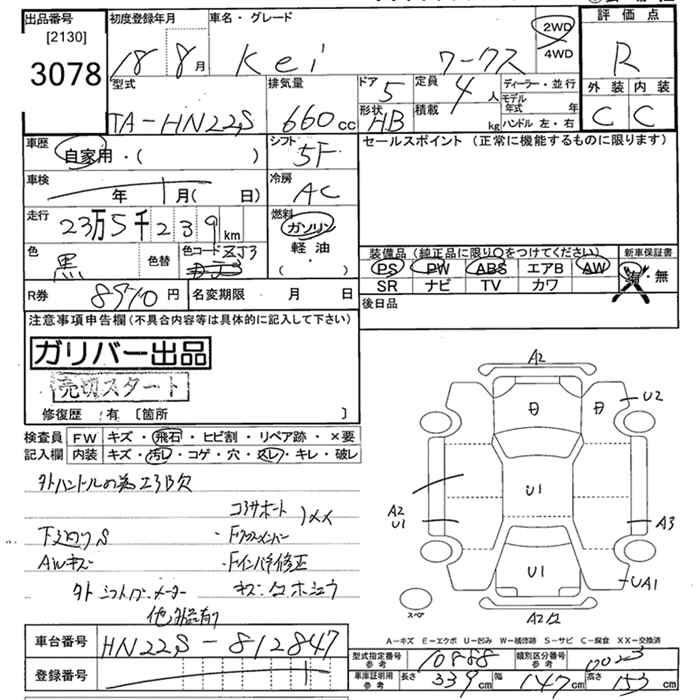 出品番号 初度登録年月 車名・グレード 評価点
[2130] 18 8月 Kei ワークス 2WD R
3078 4WD
型式 排気量 ドア 5 定員 4人 ディーラー・並行 外装 内装
TA-HN22S 660cc 形状 HB 積載 kg モデル年式 年 C C
ハンドル 左・右
車歴 自家用・( ) シフト 5F セールスポイント (正常に機能するものに限ります)
車検 年 1月( 日) 冷房 AC
走行 23万5千239km 燃料 ガソリン
色 黒 色替 色コード ZJ3 軽油
・( )
装備品(純正品に限り○をつけてください) 新車保証書
PS PW ABS エアB AW 有・無
SR ナビ TV カワ
R券 8910円 名変期限 月 日 後日品
注意事項申告欄(不具合内容等は具体的に記入して下さい)
ガリバー出品
売切スタート
修復歴 有 [箇所 ]
検査員 FW キズ・飛石・ヒビ割・リペア跡・×要
記入欄 内装 キズ・汚レ・コゲ・穴・スレ・キレ・破レ
コアサポート
下廻りS
AWキズ
他
車台番号 HN22S-812847
登録番号
A2
U2
U1
A2
U1
A3
U1
UA1
スペア
A-キズ E-エクボ U-凹み W-補修跡 S-サビ C-腐食 XX-交換済
型式指定番号 参考 10888 類別区分番号 参考 0023
車庫証明用 参考 長さ 339cm 幅 147cm 高さ 153cm